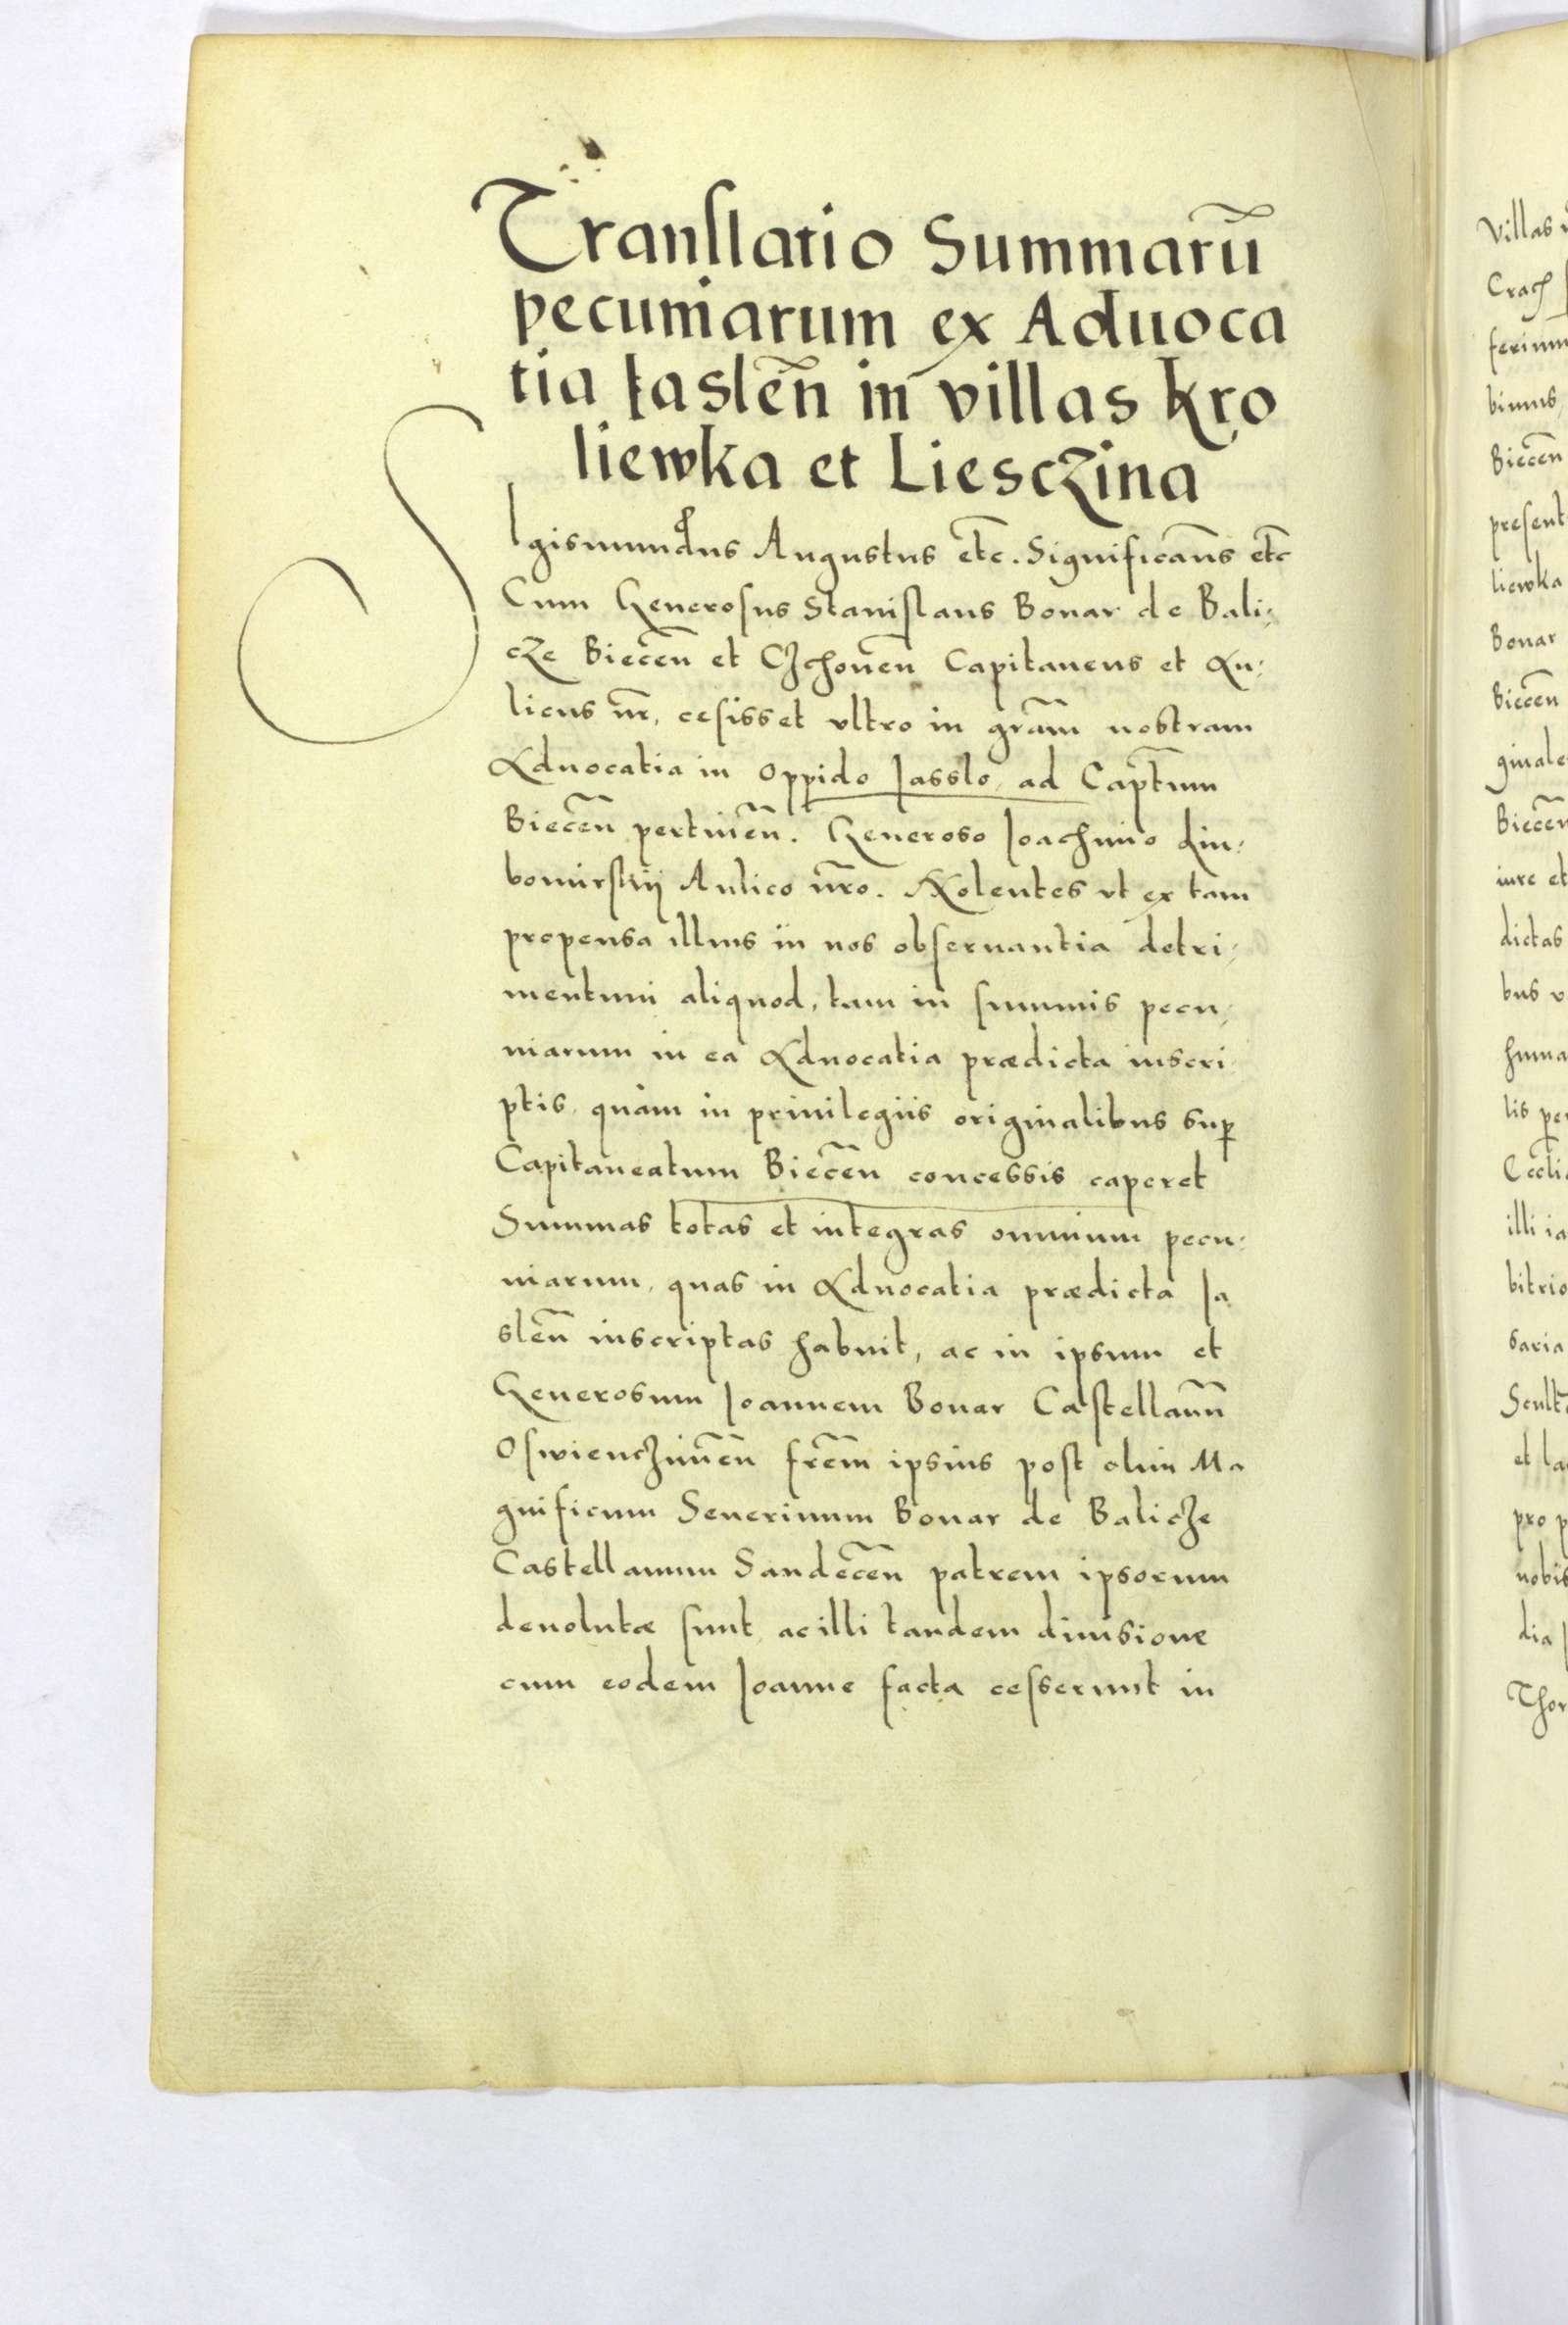 Translatio Summarū
pecuniarum ex Aduoca
tia Iaslen̄ in villas Kro
liewka et Liesczina
Sigismundus Augustus etc̄. Significam̄s etc̄
Cum Generosus Stanislaus Bonar de Bali:
cze Biecen̄ et Czchouen̄ Capitaneus et Au:
licus nr̄, cesisset vltro in gr̄am nostram
Aduocatia in Oppido Iasslo, ad Captūm
Biecen̄ pertinen̄. Generoso Ioachimo Liu:
bomirskij Aulico nr̄o. Nolentes vt ex tam
propensa illius in nos obseruantia detri:
mentum aliquod, tam in summis pecu:
niarum in ea Aduocatia prædicta inscri
ptis, quàm in priuilegiis originalibus sup̄
Capitaneatum Biecen̄ concessis caperet
Summas totas et integras omnium pecu:
niarum, quas in Aduocatia prædicta Ia
slen̄ inscriptas habuit, ac in ipsum et
Generosum Ioannem Bonar Castellanū
Oswienczimen̄ frēm ipsius post olim Ma
gnificum Seuerinum Bonar de Balicze
Castellanum Sandecen̄ patrem ipsorum
deuolutæ sunt, ac illi tandem diuisione
cum eodem Ioanne facta cesserunt in
Villas
Crac̄
ferimu
bimus,
Biecen̄
present
liewka
Bonar
Biecen̄
ginale
Biecen̄
iure et
dictas
bus v
huma
lis per
Eccli
illi ia
bitrio
saria
Scult
et la
pro p
nobis
dia
Thor